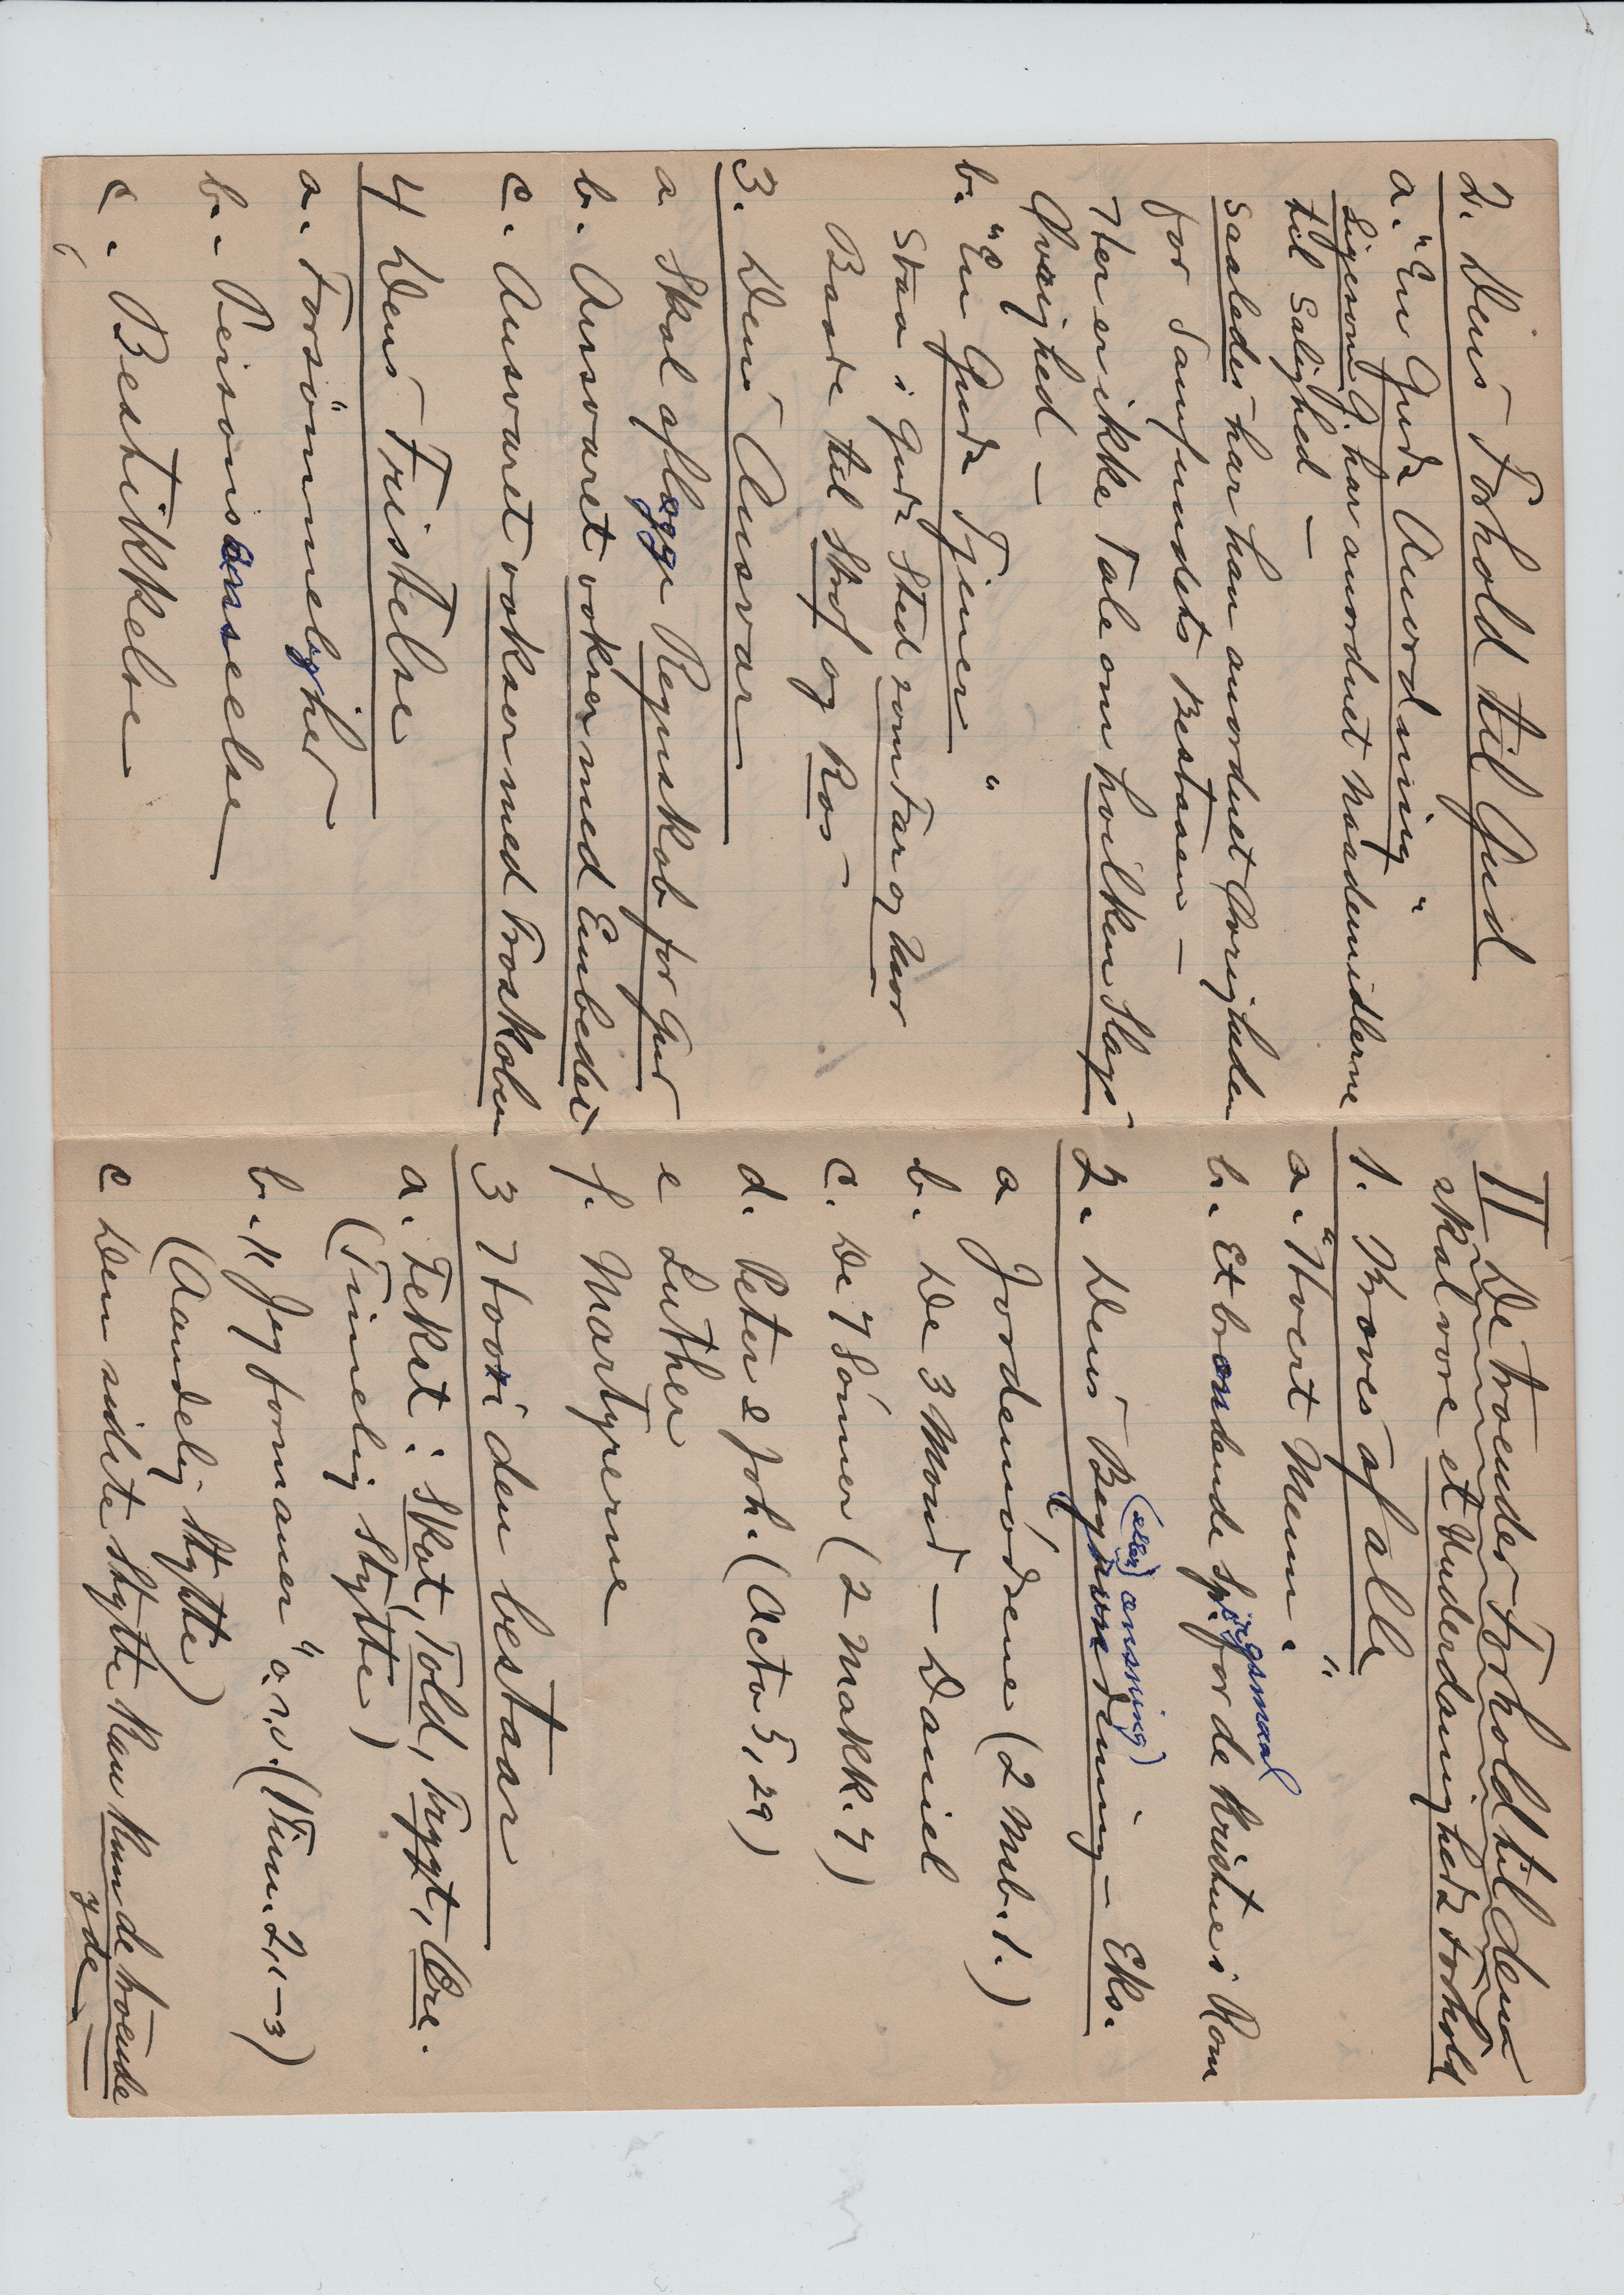 2. Dens Forhold til Gud
a. "En Guds Anordning"
Ligesom G. har anordnet Naademidlerne
til Salighed —
saaledes har han anordnet Øvrigheden
for Samfundets Bestaaen —
Her er ikke Tale om hvilken Slags
Øvrighed —
b. "En Guds Tjener"
Staa i Guds Sted som Far og Mor
Baade til Straf og Ros —
3. Dens Ansvar
a Skal aflægge Regnskab for Gud
b. Ansvaret vokser med Embedet
c. Ansvaret vokser med Troskaben
4 Dens Fristelse
a. Forsömmeligher
b. Persons anseelse
c. Bestikkelse
II De troendes Forhold til den
skal vere et Underdanigheds Forhold
1. Kræves af alle
a. "Hvert Menn."
b. Et brændende Spörgsmaal for de kristne i Rom
2. Dens Begrænsning — Eks.
(eller) ænsning)
a Jordemödrene (2 Msb. 1.)
b. De 3 Mænd — Daniel
c. De 7 Sönner (2 Makk. 7)
d. Peter & Joh. (Acta 5, 29)
e Luther
f. Martyrerne
3 Hvori den bestaar
a. Tekst: Skat, Told, Frygt, Ære.
(Timelig Stytte)
b. "Jeg formaner" o.s.v. (1 Tim. 2, 1-3)
(Aandelig Stytte)
c Den sidste Stytte kan kun de troende
yde —